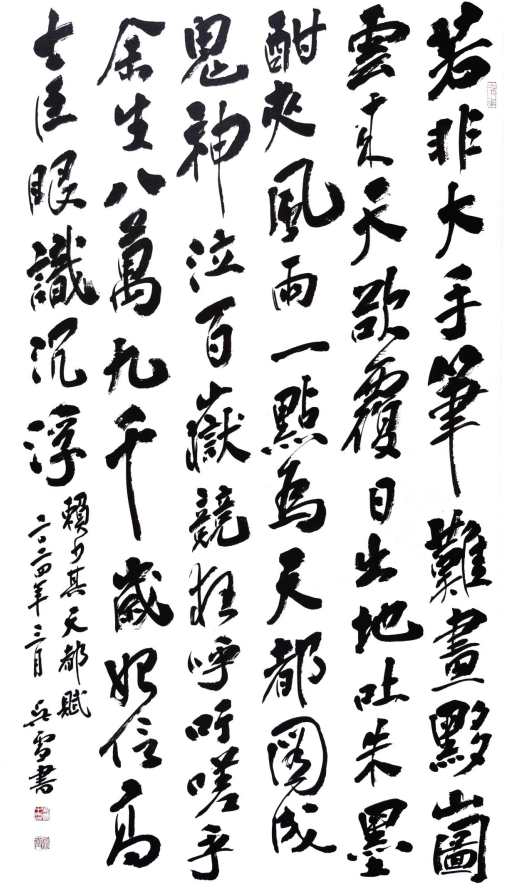 若非大手筆難畫黟山圖
雲來天欲覆日出地吐朱墨
酣夾風雨一點為天都圖成
鬼神泣百嶽競狂呼吁嗟乎
余生八萬九千歲始信高
士巨眼識沉浮
賴少其天都賦
二〇二四年三月吳雪書